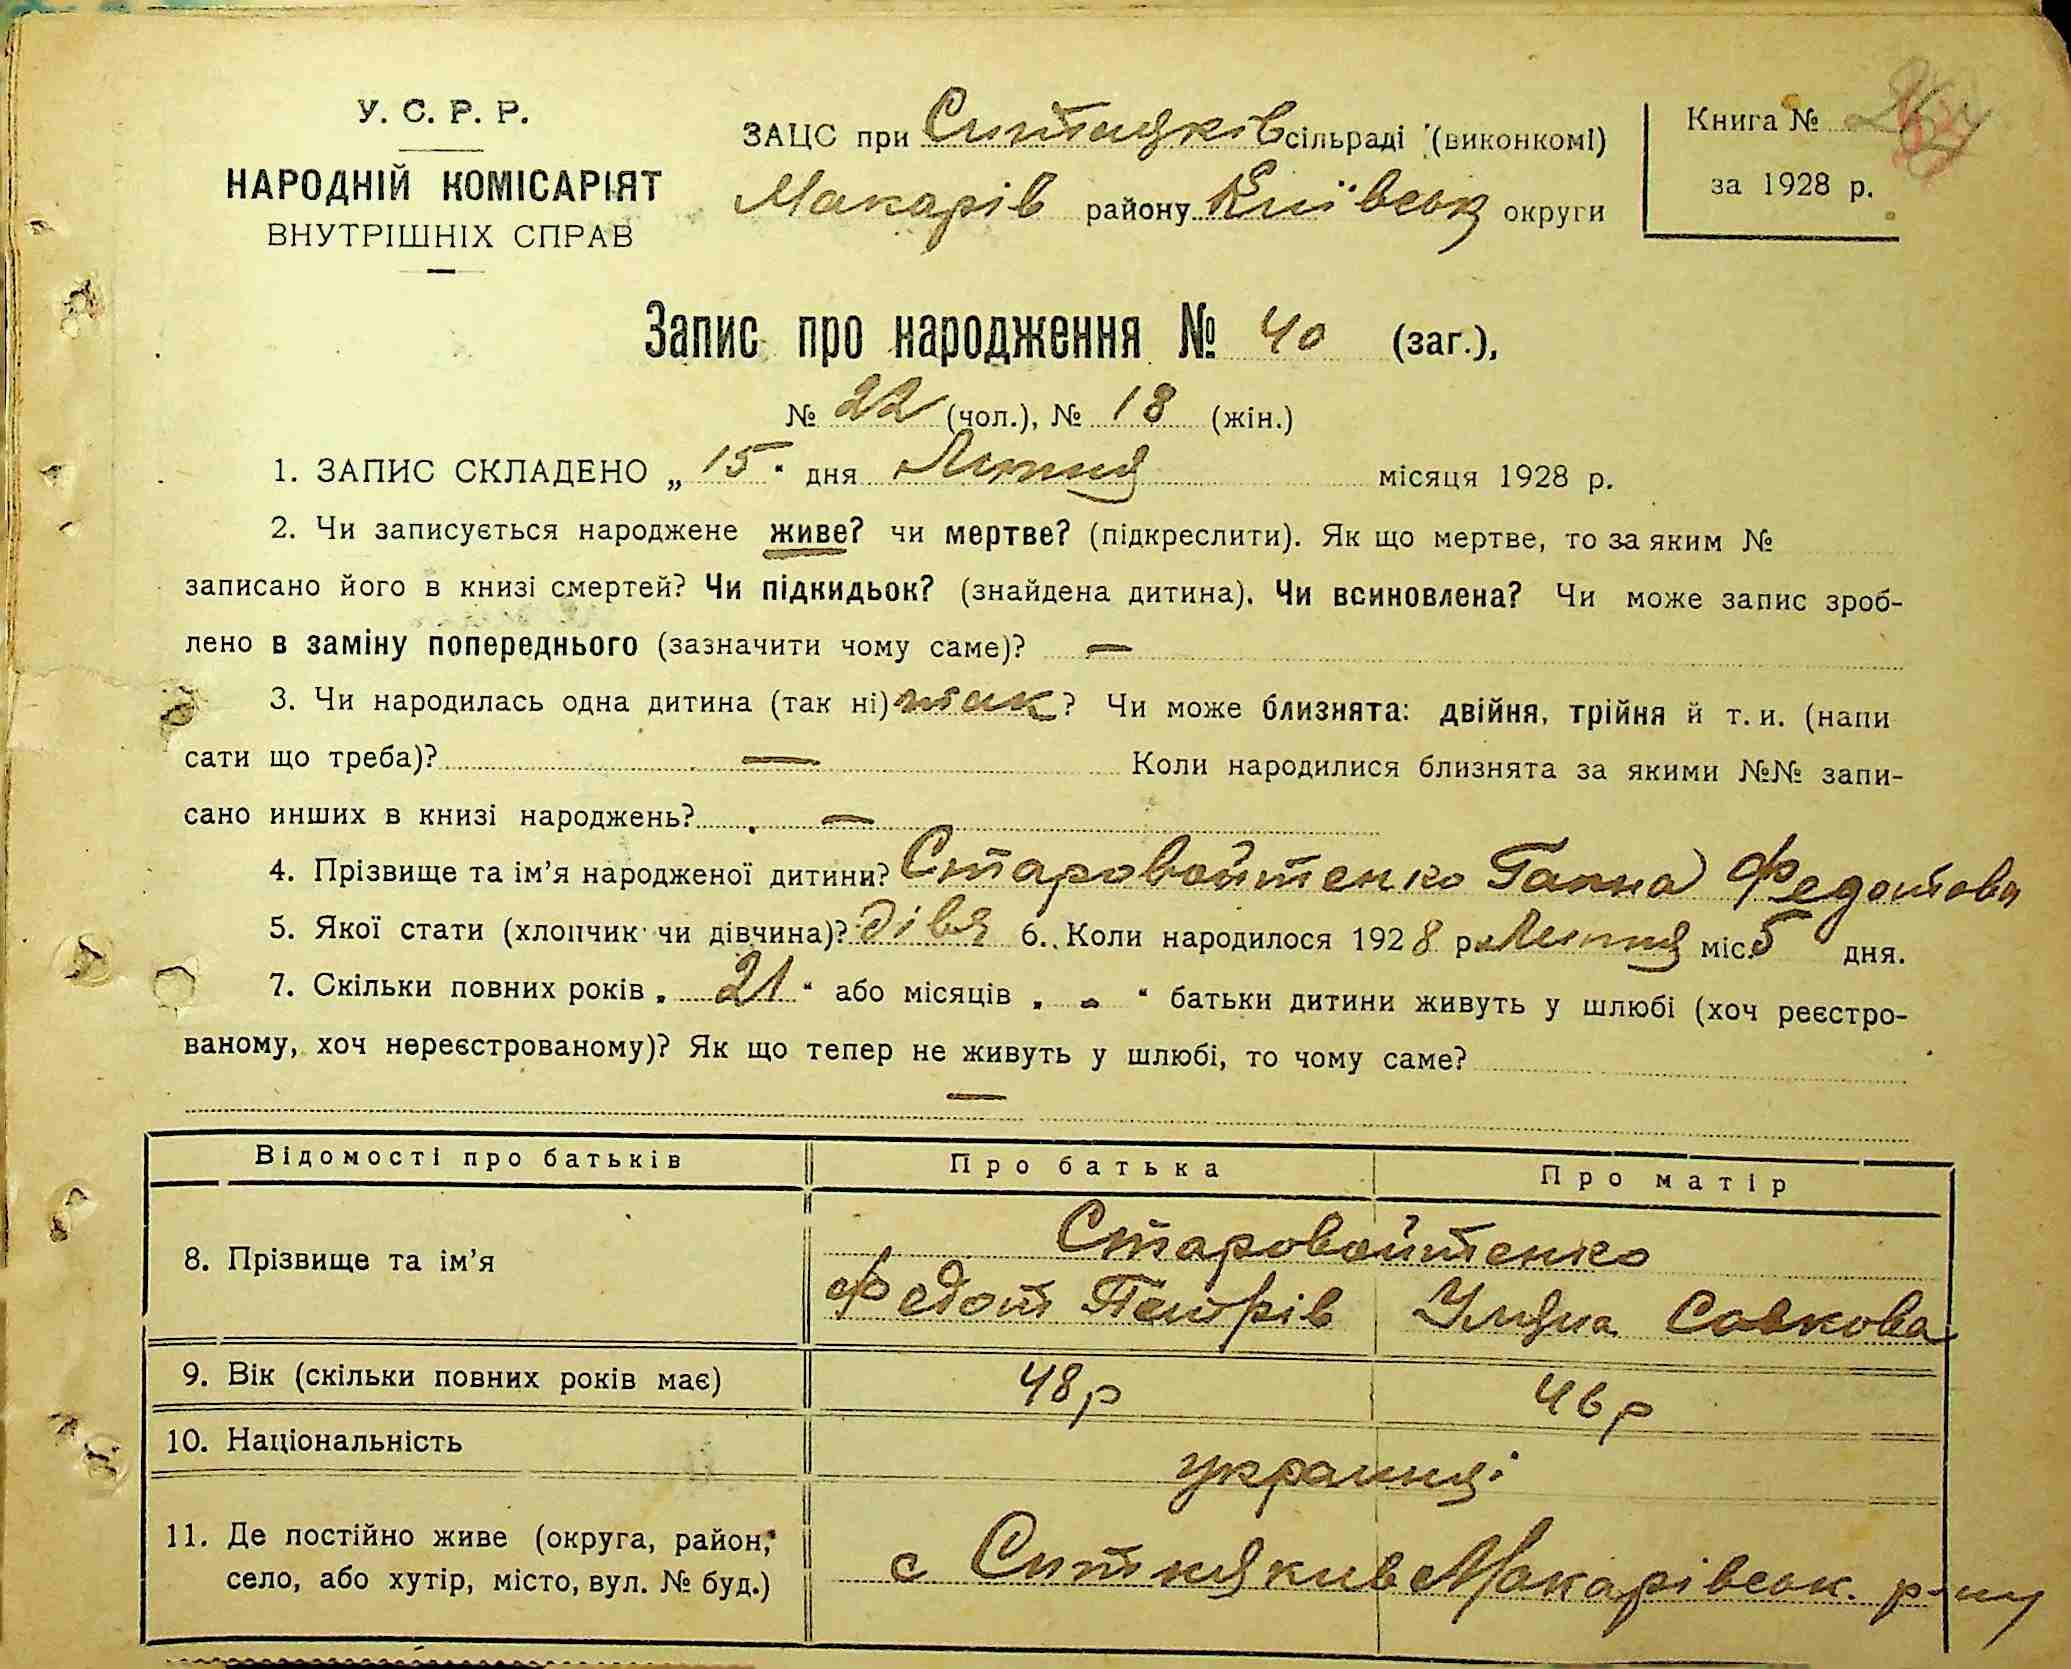 У. С. Р. Р.
НАРОДНІЙ КОМІСАРІЯТ
ВНУТРІШНІХ СПРАВ
ЗАЦС при Ситняків сільраді (виконкомі)
Макарів району Київськ округи
Книга №
за 1928 р.
Запис про народження № 40 (заг.),
№ 22 (чол.), № 18 (жін.)
1. ЗАПИС СКЛАДЕНО „ 15 “ дня Липня місяця 1928 р.
2. Чи записується народжене живе? чи мертве? (підкреслити). Як що мертве, то за яким №
записано його в книзі смертей? Чи підкидьок? (знайдена дитина). Чи всиновлена? Чи може запис зроб-
лено в заміну попереднього (зазначити чому саме)? —
3. Чи народилась одна дитина (так ні) так? Чи може близнята: двійня, трійня й т. и. (напи
сати що треба)? — Коли народилися близнята за якими №№ запи-
сано инших в книзі народжень? —
4. Прізвище та ім’я народженої дитини? Старовойтенко Ганна Федотова
5. Якої стати (хлопчик чи дівчина)? дівч 6. Коли народилося 1928 р. Липня міс. 5 дня.
7. Скільки повних років „ 21 “ або місяців „ - “ батьки дитини живуть у шлюбі (хоч реєстро-
ваному, хоч нереєстрованому)? Як що тепер не живуть у шлюбі, то чому саме?
—
Відомості про батьків Про батька Про матір
8. Прізвище та ім’я Старовойтенко
Федот Петрів Уляна Савкова
9. Вік (скільки повних років має) 48 р 46 р
10. Національність українці
11. Де постійно живе (округа, район,
село, або хутір, місто, вул. № буд.) с Ситнякив Макарівськ. р-ну